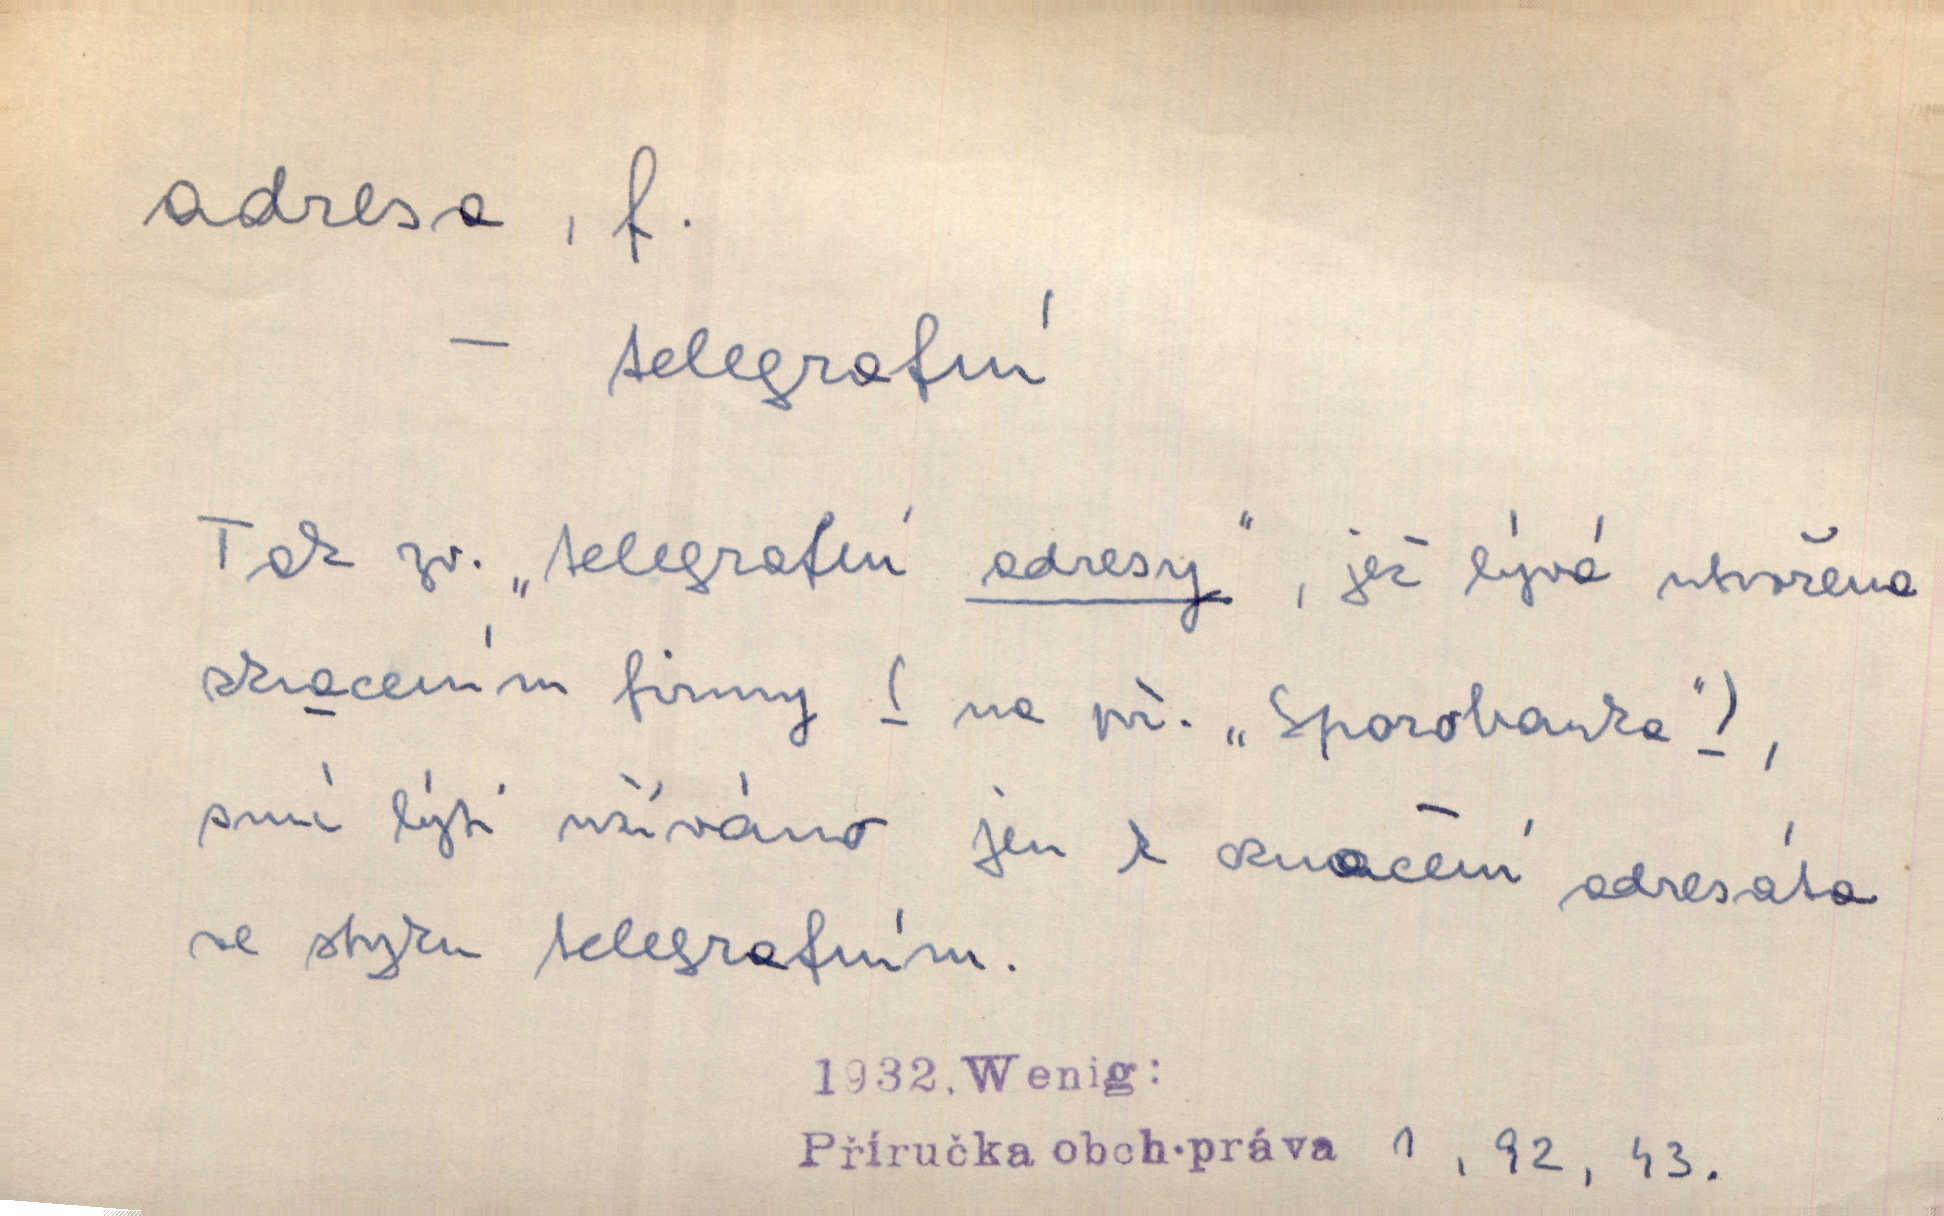 adresa, f.
— telegrafní
Tak zv. „telegrafní adresy“, jež bývá utvořena
zkracením firmy (na př. „Sporobanka“),
smí býti užíváno jen k označení adresáta
ve styku telegrafním.
1932. Wenig:
Příručka obch. práva 1, 92, 43.